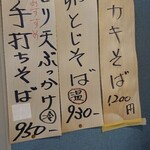 カキそば
1200円
卵とじそば
温
930-
り天ぶっかけ
冷
手打ちそば
950-